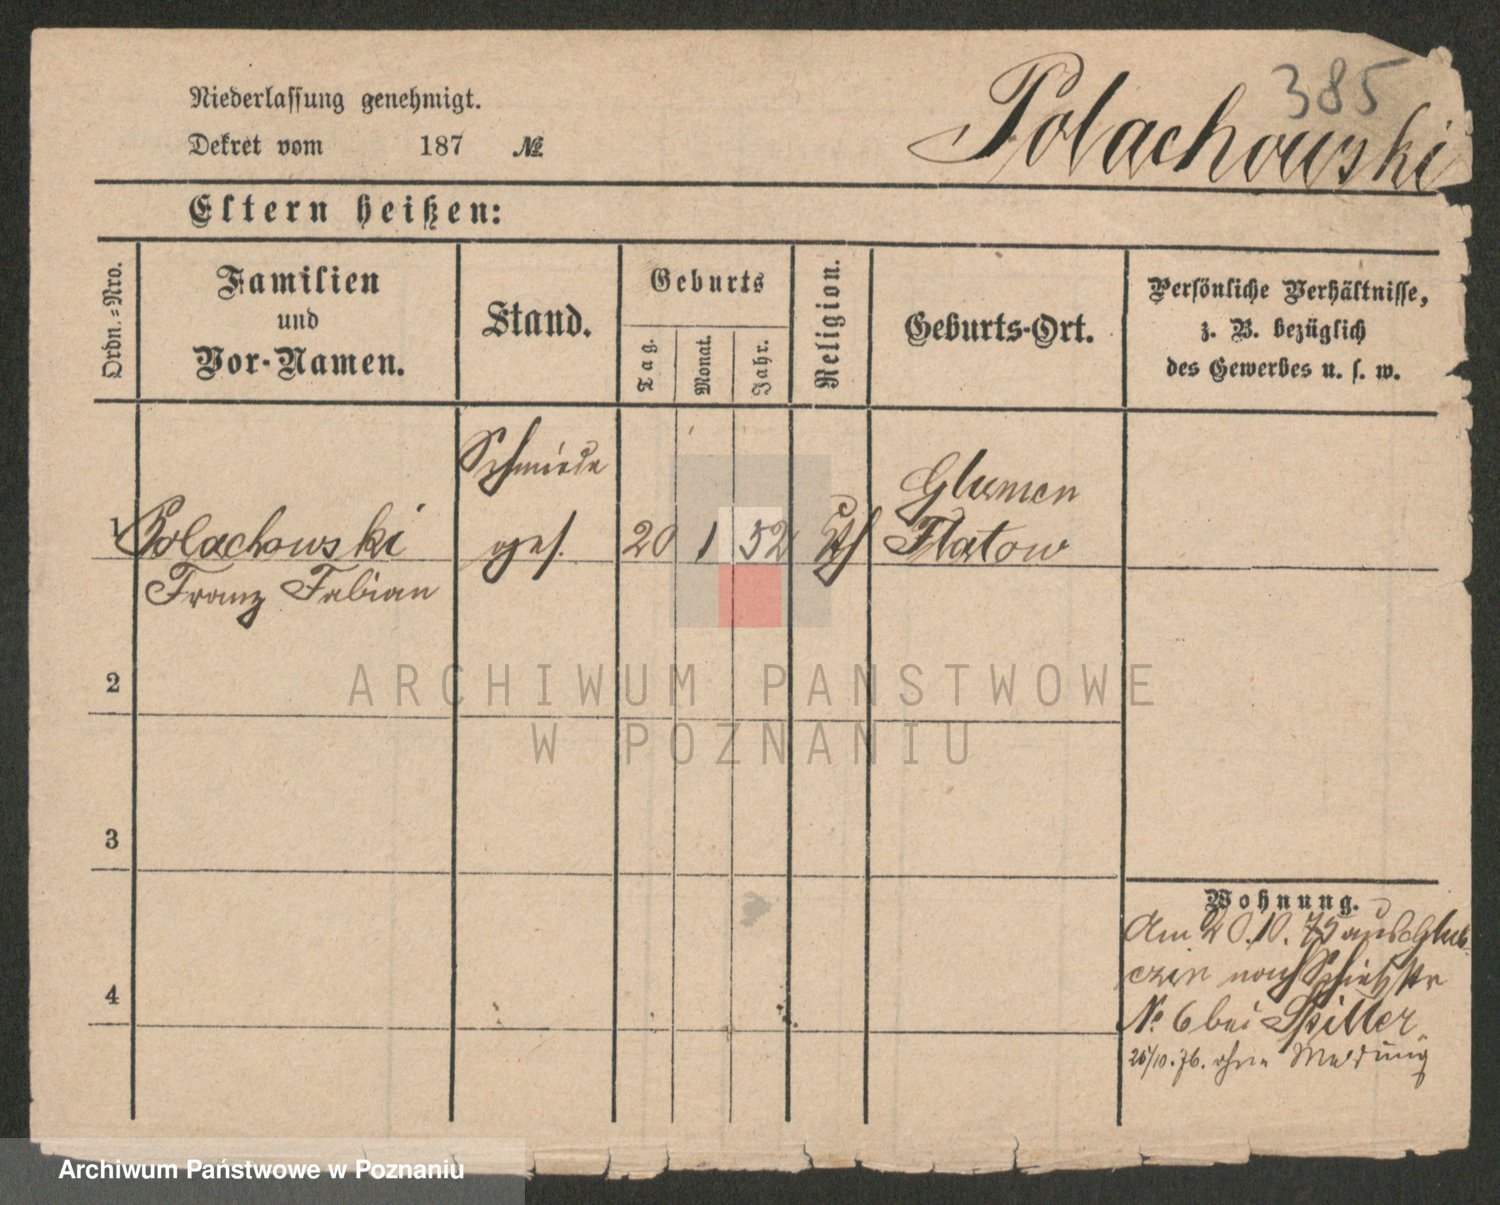 385
Niederlassung genehmigt.
Dekret vom 187 №
Polachowski
Eltern heißen:
Ordn.-Nro.
Familien
und
Vor-Namen.
Stand.
Geburts
Tag.
Monat.
Jahr.
Religion.
Geburts-Ort.
Persönliche Verhältnisse,
z. B. bezüglich
des Gewerbes u. s. w.
Schmiede
ges.
1
Polachowski
Franz Fabian
20 1 52
Glumen
Flatow
2
3
4
Wohnung.
Am 20.10.75 aus
nach Schießstr
№ 6 bei Spiller
25/10.76. ohne Meldung
ARCHIWUM PAŃSTWOWE
W POZNANIU
Archiwum Państwowe w Poznaniu